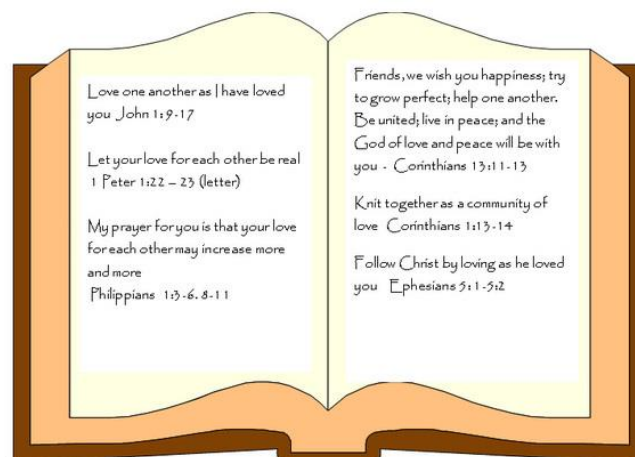 Love one another as I have loved
you John 1:9-17
Let your love for each other be real
1 Peter 1:22 – 23 (letter)
My prayer for you is that your love
for each other may increase more
and more
Philippians 1:3-6. 8-11
Friends, we wish you happiness; try
to grow perfect; help one another.
Be united; live in peace; and the
God of love and peace will be with
you - Corinthians 13:11-13
Knit together as a community of
love Corinthians 1:13-14
Follow Christ by loving as he loved
you Ephesians 5: 1-5:2